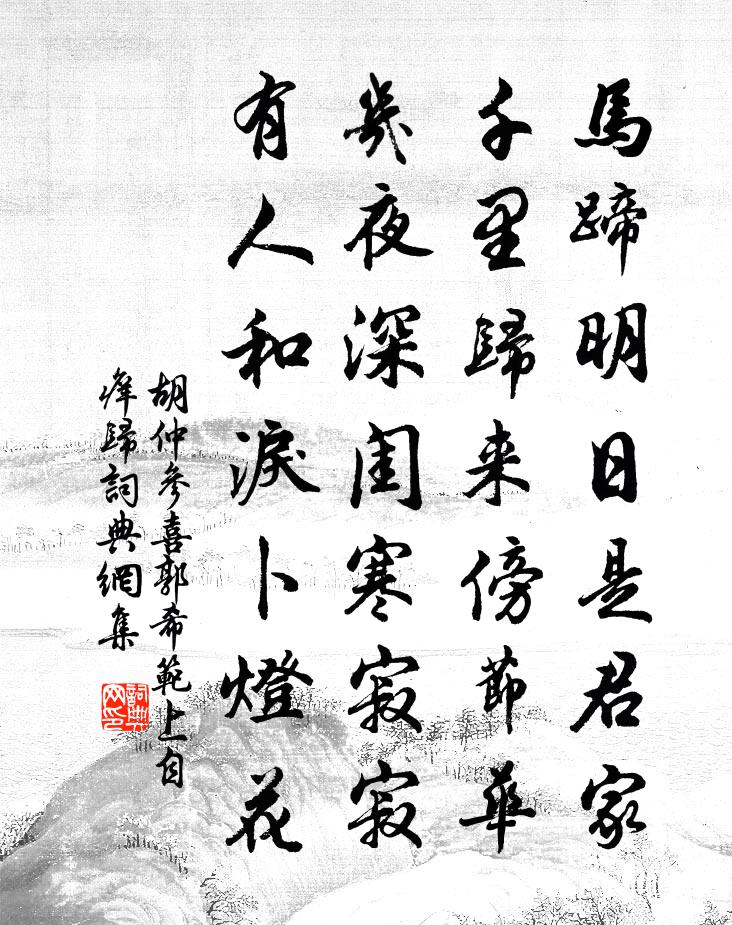 馬蹄明日是君家
千里歸来傍節華
幾夜深闺寒寂寂
有人和淚卜燈花
胡仲參喜郭希範上自
庠歸詞典網集
詞典网印